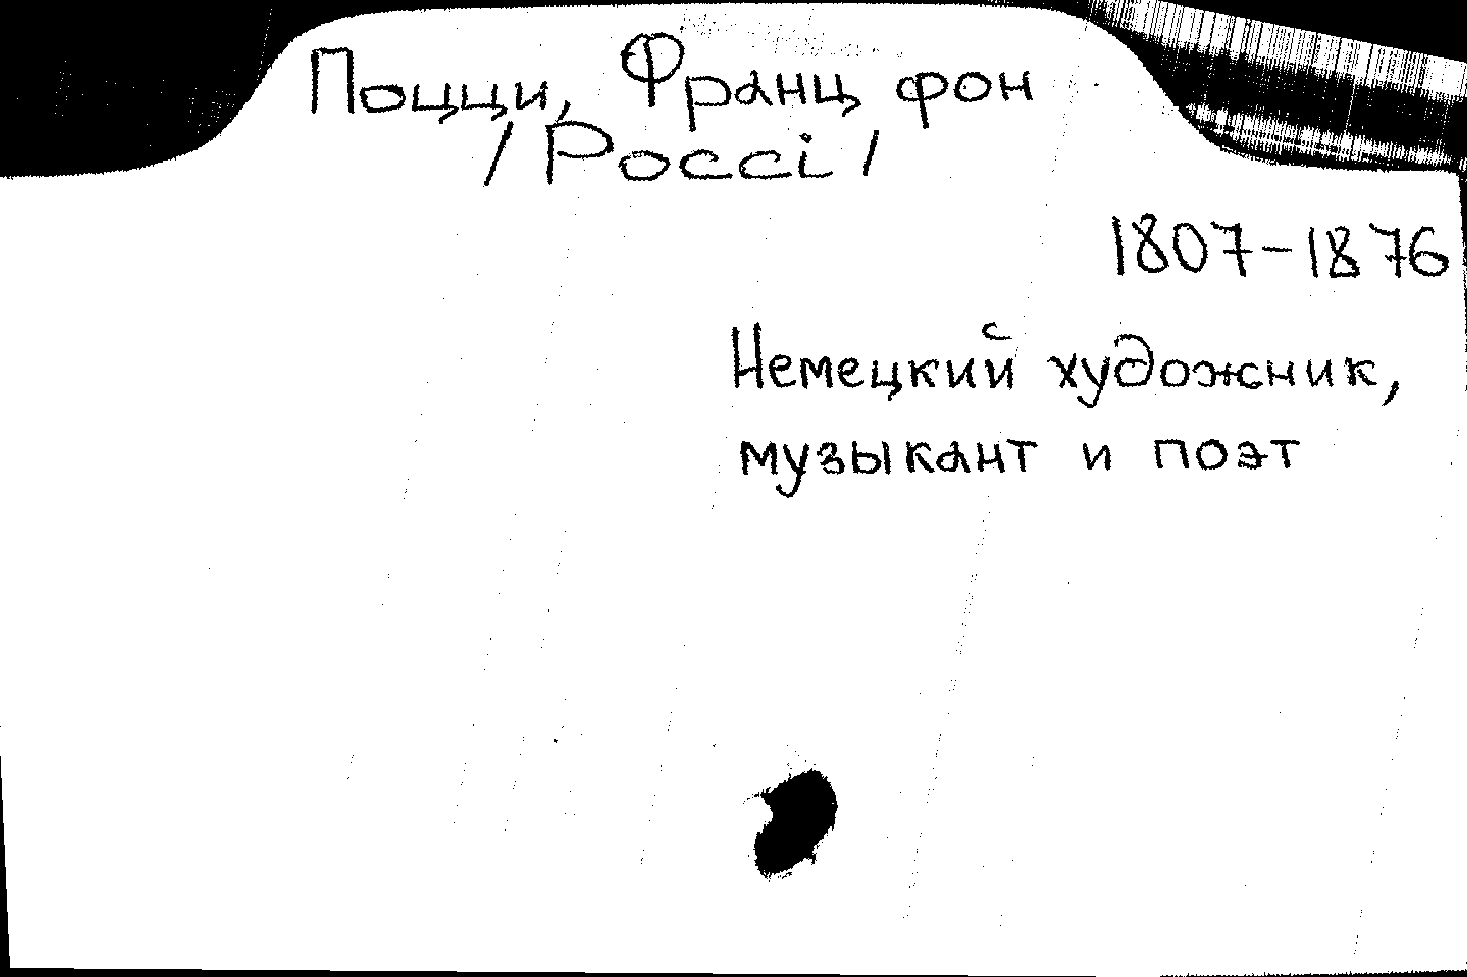 Поцци, Франц фон
/Pocci/
1807-1876
Немецкий художник,
музыкант и поэт